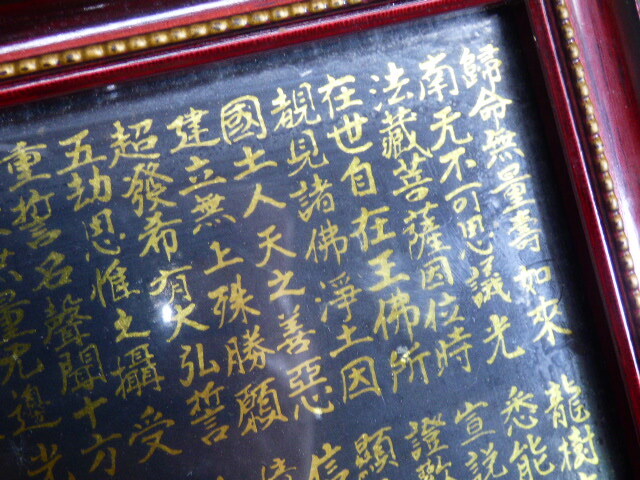 歸命無量壽如來
南无不可思議光
法藏菩薩因位時
在世自在王佛所
覩見諸佛淨土因
國土人天之善惡
建立無上殊勝願
超發希有大弘誓
五劫思惟之攝受
重誓名聲聞十方
量无邊光
龍樹
悉能
宣説
證歡
顯
信